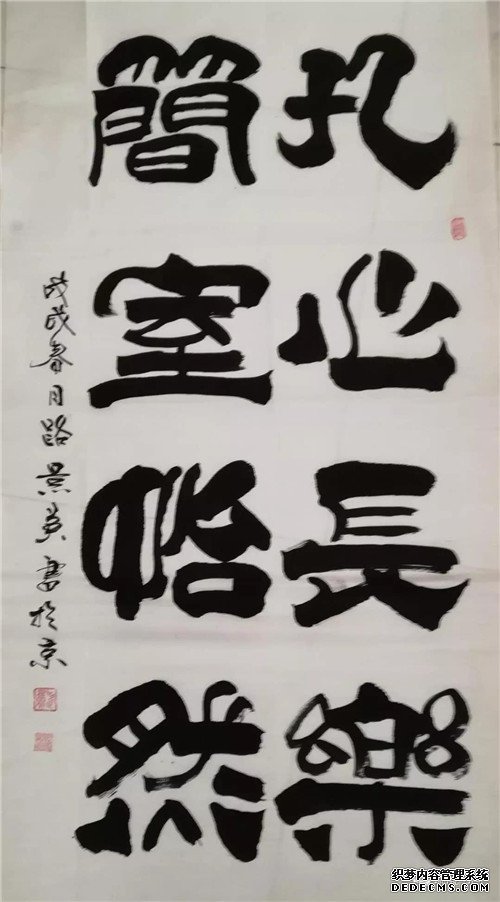 孔心長樂
簡室怡然
戊戌春月路景贵書於京
织梦内容管理系统
DEDECMS.COM